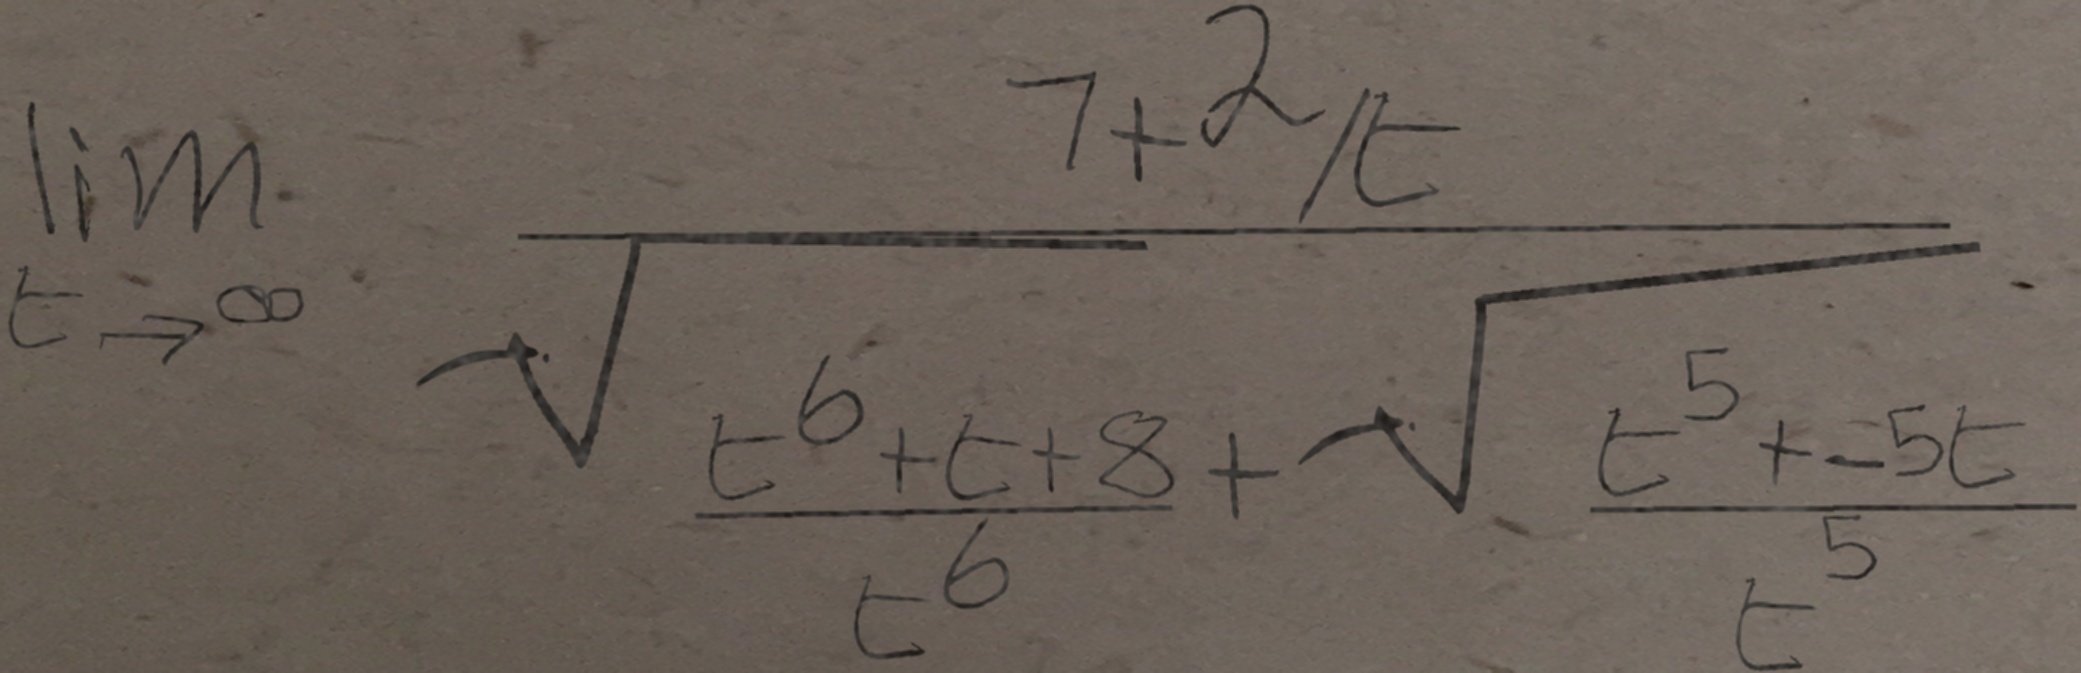 \lim_{t \to \infty} \frac{7 + 2/t}{\sqrt{\frac{t^6 + t + 8}{t^6}} + \sqrt{\frac{t^5 + -5t}{t^5}}}